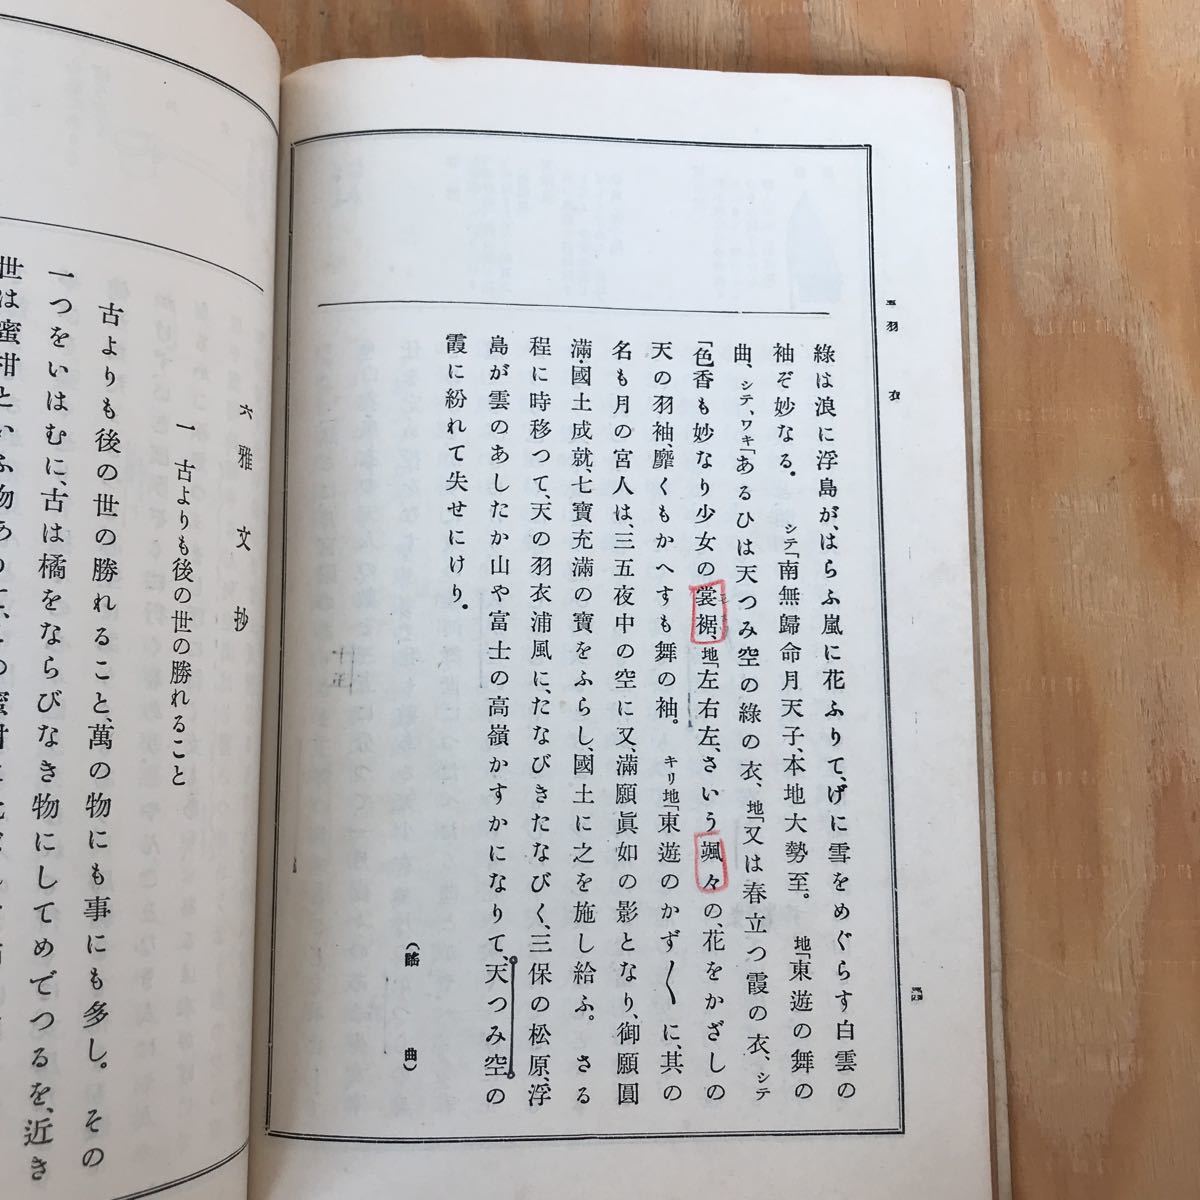 羽衣
綠は浪に浮島が、はらふ嵐に花ふりて、げに雪をめぐらす白雲の
袖ぞ妙なる。シテ「南無歸命月天子、本地大勢至。地「東遊の舞の
曲、シテ、ワキ「あるひは天つみ空の綠の衣、地「又は春立つ霞の衣、シテ
「色香も妙なり少女の裳裾、地「左右左、さいう颯々の、花をかざしの
天の羽袖、靡くもかへすも舞の袖。キリ地「東遊のかず〱に、其の
名も月の宮人は、三五夜中の空に又、滿願眞如の影となり、御願圓
滿・國土成就、七寶充滿の寶をふらし、國土に之を施し給ふ。さる
程に時移つて、天の羽衣浦風に、たなびきたなびく、三保の松原、浮
島が雲のあしたか山や富士の高嶺かすかになりて、天つみ空の
霞に紛れて失せにけり。
(謠曲)
六 雅文抄
一 古よりも後の世の勝れること
古よりも後の世の勝れること、萬の物にも事にも多し。その
一つをいはむに、古は橘をならびなき物にしてめでつるを、近き
世は蜜柑といふ物ありて、この蜜柑に